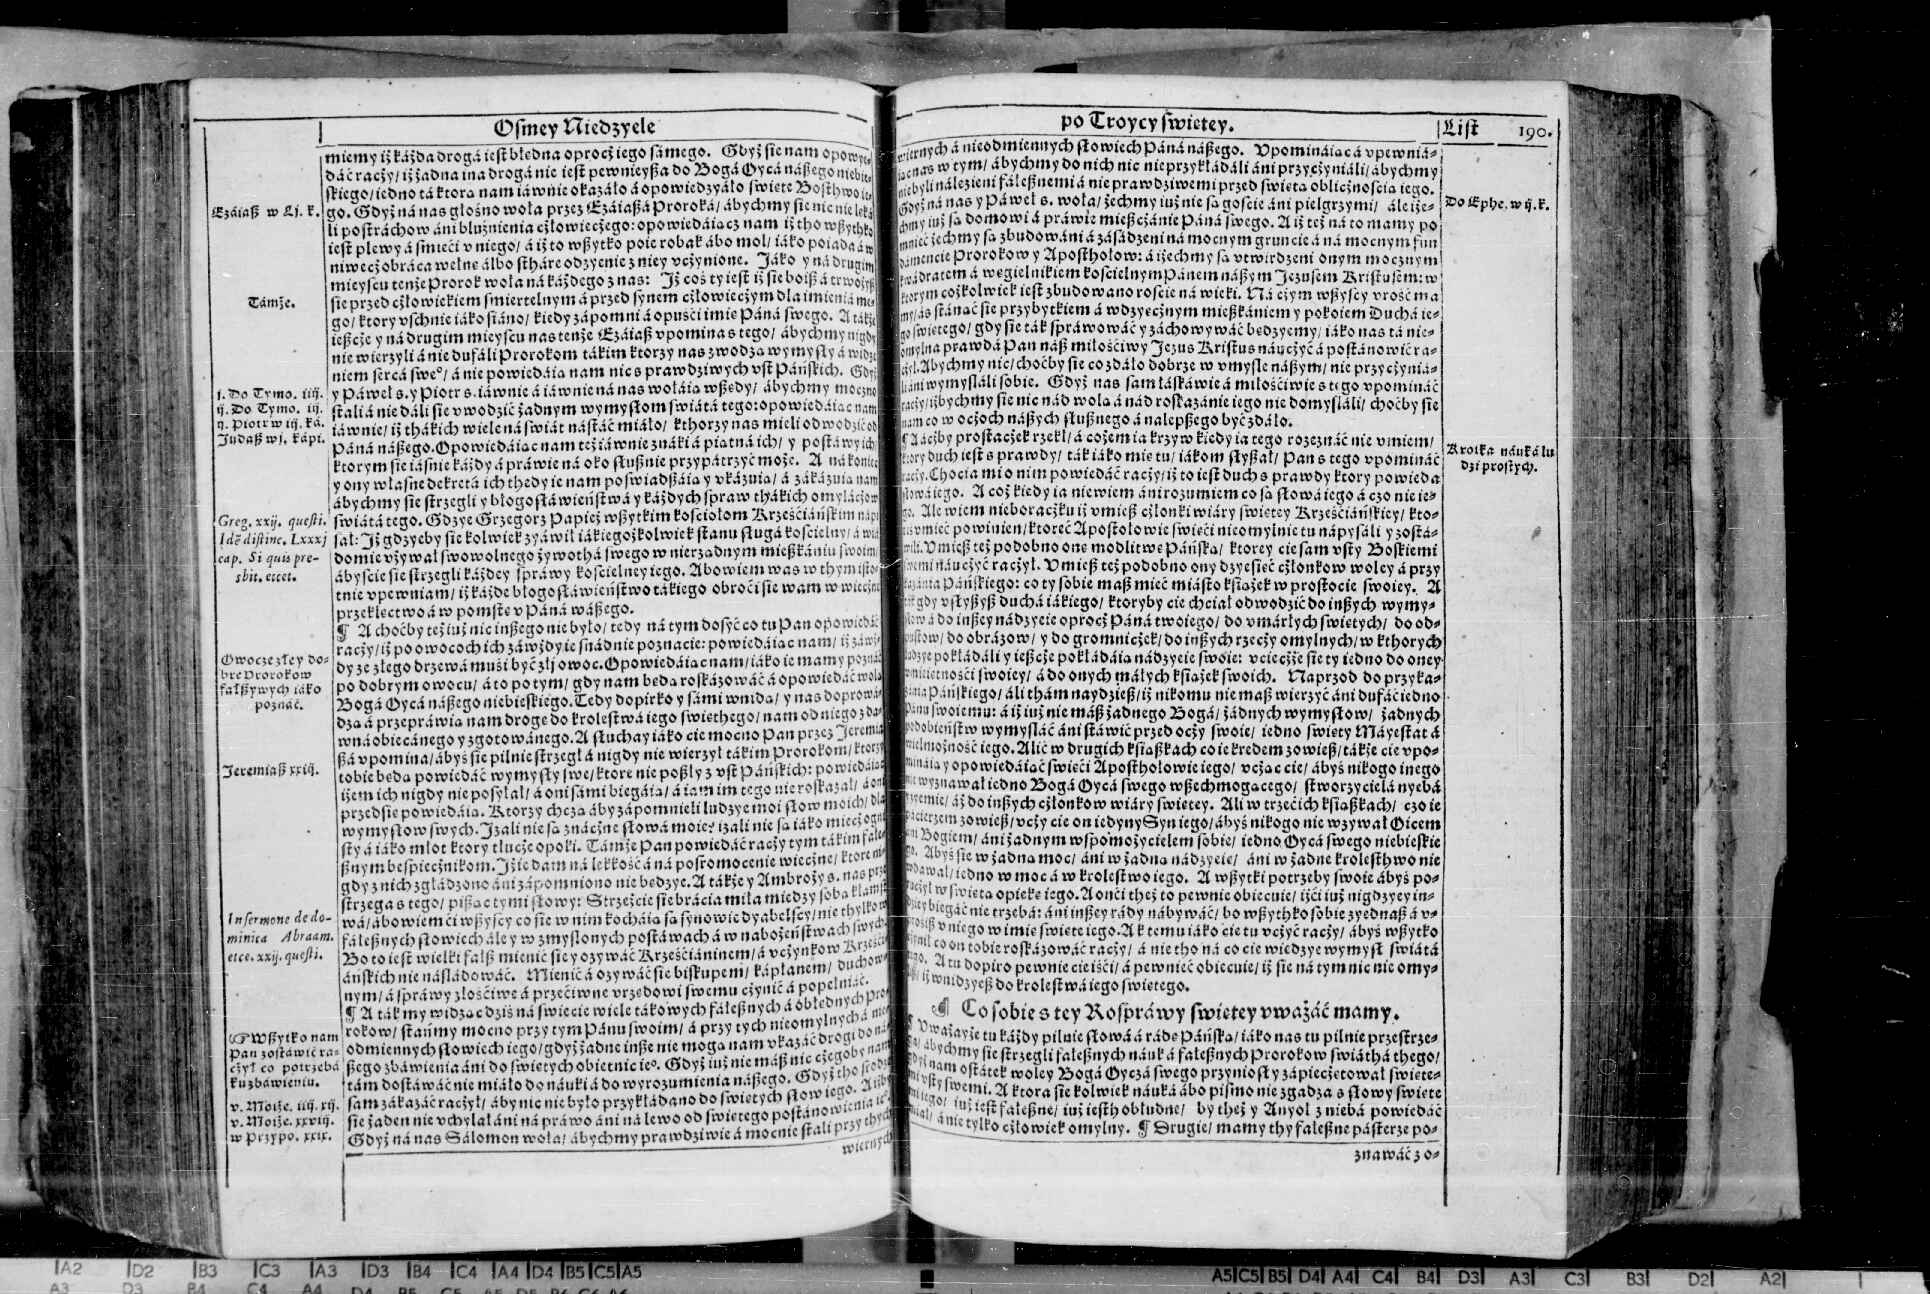 Osmey Niedzyele
miemy iż każda droga iest błędna oprocż iego samego. Gdyż sie nam opowye-
dáć racży/ iż żadna ina droga nie iest pewnieyßa do Bogá Oycá náßego niebie-
skiego/ iedno tá ktora nam iáwnie okazáło á opowiedzyáło swięte Bosthwo ie-
go. Gdyż ná nas głośno woła przez Ezáiaßá Proroká/ ábychmy sie nic nie leká
li postráchow áni bluźnienia cżłowiecżego: opowiedáiącz nam iż tho wßythko
iest plewy á smieći v niego/ á iż to wßytko poie robak ábo mol/ iáko poiada á w
niwecż obráca wełnę álbo sthárę odzyenie z niey vcżynione. Jáko y ná drugim
mieyscu tenże Prorok woła ná káżdego z nas: Jż coś ty iest iż sie boiß á trwożyß
sie przed cżłowiekiem smiertelnym á przed synem cżłowiecżym dla imieniá me-
go/ ktory vschnie iáko siáno/ kiedy zápomni á opuśći imię Páná swego. A tákże
ießcże y ná drugim mieyscu nas tenże Ezáiaß vpomina s tego/ ábychmy nigdy
nie wierzyli á nie dufáli Prorokom tákim ktorzy nas zwodzą wymysły á widze
niem sercá sweº/ á nie powiedáią nam nic s prawdziwych vst Páńskich. Gdyż
y Páweł s. y Piotr s. iáwnie á iáwnie ná nas wołáią wßędy/ ábychmy mocżno
stali á nie dáli sie vwodzić żadnym wymysłom swiátá tego: opowiedáiąc nam
iáwnie/ iż thákich wiele ná świát nástáć miáło/ kthorzy nas mieli odwodzić od
Páná náßego. Opowiedáiąc nam też iáwnie znáki á piątná ich/ y postáwy ich
ktorym sie iáśnie káżdy á práwie ná oko słußnie przypátrzyć może. A ná koniec
y ony własne dekretá ich thedy ie nam poświádßáią y vkázuią/ á zákázuią nam
ábychmy sie strzegli y błogosłáwieństwá y káżdych spraw thákich omylácżow
świátá tego. Gdzye Grzegorz Papież wßytkim kościołom Krześćiáńskim nápi
sał: Jż gdzyeby sie kolwiek zyáwił iákiegożkolwiek stanu sługá kośćielny/ á wiá
domie vżywał swowolnego żywothá swego w nierządnym mießkániu swoim/
ábyśćie sie strzegli káżdey spráwy kośćielney iego. Abowiem was w thym isto-
tnie vpewniam/ iż káżde błogosłáwieństwo tákiego obroći sie wam w wiecżne
przeklectwo á w pomstę v Páná wáßego.
¶ A choćby też iuż nic inßego nie było/ tedy ná tym dosyć co tu Pan opowiedáć
racży/ iż po owococh ich záwżdy ie snádnie poznacie: powiedáiąc nam/ iż záwż-
dy ze złego drzewá muśi być zły owoc. Opowiedáiąc nam/ iáko ie mamy poznáć
po dobrym owocu/ á to po tym/ gdy nam będą roskázowáć á opowiedáć wolą
Bogá Oycá náßego niebieskiego. Tedy dopirko y sámi wnidą/ y nas doprowá-
dzą á przepráwią nam drogę do krolestwá iego swiethego/ nam od niego z da-
wná obiecánego y zgotowánego. A słuchay iáko cie mocno Pan przez Jeremiá
ßá vpomina/ ábyś sie pilnie strzegł á nigdy nie wierzył tákim Prorokom/ ktorzy
tobie będą powiedáć wymysły swe/ ktore nie poßły z vst Páńskich: powiedáiąc
iżem ich nigdy nie posyłał/ á oni sámi biegáią/ á iam im tego nie roskazał/ á oni
przedsię powiedáią. Ktorzy chcą áby zápomnieli ludzye moi słow moich/ dla
wymysłow swych. Jzali nie są znácżne słowá moie? izali nie są iáko miecż ogni
sty á iáko młot ktory tłucże opoki. Támże Pan powiedáć racży tym tákim fałe-
ßnym bespiecżnikom. Jżie dam ná lekkość á ná pośromocenie wiecżne/ ktore ni-
gdy z nich zgładzono áni zápomniono nie będzye. A tákże y Ambroży s. nas prze
strzega s tego/ pißąc tymi słowy: Strzeżcie sie brácia miła miedzy sobą kłamst
wá/ ábowiemći wßyscy co sie w nim kocháią są synowie dyabelscy/ nie thylko w
fáłeßnych słowiech ále y w zmyślonych postáwach á w nabożeństwach swych.
Bo to iest wielki fałß mienić sie y ozywáć Krześćiáninem/ á vcżynkow Krześći-
áńskich nie násládowáć. Mienić á ozywáć sie biskupem/ kápłanem/ duchow-
nym/ á spráwy złośćiwe á przećiwne vrzędowi swemu cżynić á popełniáć.
¶ A ták my widząc dziś ná świecie wiele tákowych fáłeßnych á obłędnych pro-
rokow/ stańmy mocno przy tym Pánu swoim/ á przy tych nieomylnych á nie
odmiennych słowiech iego/ gdyż żadne inße nie mogą nam vkazáć drogi do ná-
ßego zbáwienia áni do swiętych obietnic ieº. Gdyż iuż nie máß nic cżegoby nam
tám dostáwáć nie miáło do náuki á do wyrozumienia náßego. Gdyż tho srodze
sam zákázáć racżył/ áby nic nie było przykłádano do swiętych słow iego. A iżby
sie żaden nie vchylał áni ná práwo áni ná lewo od swiętego postánowienia ieº.
Gdyż ná nas Sálomon woła/ ábychmy prawdziwie á mocnie stali przy thych
wiernych
Ezáiaß w Lj. k.
Támże.
j. Do Tymo. iiij.
ij. Do Tymo. iij.
ij. Piotr w ij. ká.
Judaß w j. kápi.
Greg. xxij. questi.
Idẽ distinc. Lxxxj
cap. Si quis pre-
sbit. etcet.
Owocze złey do-
bre Prorokow
fałßywych iáko
poznáć.
Jeremiaß xxiij.
In sermone de do-
minica Abraam.
etce. xxij. questi.
☞ Wßytko nam
Pan zostáwić ra-
cżył co potrzebá
ku zbáwieniu.
v. Moiże. iiij. xij.
v. Moiże. xxviij.
w Przypo. xxix.
po Troycy swiętey.
List 190.
wiernych á nieodmiennych słowiech Páná náßego. Vpomináiąc á vpewniá-
iąc nas w tym/ ábychmy do nich nic nie przykłádáli áni przycżyniáli/ ábychmy
nie byli nálezieni fáłeßnemi á nie prawdziwemi przed swiętą oblicżnośćią iego.
Gdyż ná nas y Páweł s. woła/ żechmy iuż nie są gośćie áni pielgrzymi/ ále iże-
chmy iuż są domowi á práwie mießcżánie Páná swego. A iż też ná to mamy po
mnieć żechmy są zbudowáni á zásádzeni ná mocnym gruncie á ná mocnym fun
dámencie Prorokow y Apostholow: á iżechmy są vtwirdzeni onym mocznym
kwádratem á węgielnikiem kościelnym Pánem náßym Jezusem Kristusem: w
ktorym cożkolwiek iest zbudowano roście ná wieki. Ná cżym wßyscy vrość ma
my/ ás stánáć sie przybytkiem á wdzyęcżnym mießkániem y pokoiem Duchá ie-
go swiętego/ gdy sie ták spráwowáć y záchowywáć będzyemy/ iáko nas tá nie-
omylna prawdá Pan náß miłośćiwy Jezus Kristus náucżyć á postánowić ra-
cżył. Abychmy nic/ choćby sie co zdáło dobrze w vmyśle náßym/ nie przycżyniá-
li áni wymyśláli sobie. Gdyż nas sam łáskáwie á miłośćiwie s tego vpomináć
racży/ iżbychmy sie nic nád wolą á nád roskazánie iego nie domyśláli/ choćby sie
nam co w ocżoch náßych słußnego á nalepßego być zdáło.
¶ A áczby prostacżek rzekł/ á cożem ia krzyw kiedy ia tego rozeznáć nie vmiem/
ktory duch iest s prawdy/ ták iáko mie tu/ iákom słyßał/ Pan s tego vpomináć
racży. Chociá mi o nim powiedáć racży/ iż to iest duch s prawdy ktory powieda
słowá iego. A coż kiedy ia niewiem áni rozumiem co są słowá iego á czo nie ie-
go. Ale wiem nieboracżku iż vmieß cżłonki wiáry swiętey Krześćiáńskiey/ kto-
reś vmieć powinien/ ktoreć Apostołowie swięći nieomylnie tu nápisáli y zostá-
wili. Vmieß też podobno onę modlitwę Páńską/ ktorey cie sam vsty Boskiemi
swemi náucżyć racżył. Vmieß też podobno ony dzyesięć cżłonkow woley á przy
kazánia Páńskiego: co ty sobie maß mieć miásto książek w prostocie swoiey. A
ták gdy vsłyßyß duchá iákiego/ ktoryby cie chciał odwodzić do inßych wymy-
słow á do inßey nádzyeie oprocż Páná twoiego/ do vmarłych swiętych/ do od-
pustow/ do obrázow/ y do gromnicżek/ do inßych rzecży omylnych/ w kthorych
ludzye pokłádáli y ießcże pokłádáią nádzyeie swoie: vciecżże sie ty iedno do oney
vmiiętności swoiey/ á do onych máłych książek swoich. Naprzod do przyka-
zánia Páńskiego/ áli thám naydzieß/ iż nikomu nie maß wierzyć áni dufáć iedno
Pánu swoiemu: á iż iuż nie máß żadnego Bogá/ żadnych wymysłow/ żadnych
podobieństw wymyśláć áni stáwić przed ocży swoie/ iedno swięty Máyestat á
wielmożność iego. Alić w drugich książkach co ie kredem zowieß/ tákże cie vpo-
mináią y opowiedáiąć swięći Apostholowie iego/ vcżąc cie/ ábyś nikogo inego
nie wyznawał iedno Bogá Oycá swego wßechmogącego/ stworzycielá nyebá
y zyemie/ áż do inßych cżłonkow wiáry swiętey. Ali w trzećich książkach/ czo ie
pacierzem zowieß/ vcży cie on iedyny Syn iego/ ábyś nikogo nie wzywał Oicem
áni Bogiem/ áni żadnym wspomożycielem sobie/ iedno Oycá swego niebieskie
go. Abyś sie w żadną moc/ áni w żadną nádzyeię/ áni w żadne krolesthwo nie
wdawał/ iedno w moc á w krolestwo iego. A wßytki potrzeby swoie ábyś po-
rucżył w swiętą opiekę iego. A onći theż to pewnie obiecuie/ iżći iuż nigdzyey in-
dziey biegáć nie trzebá: áni inßey rády nábywáć/ bo wßythko sobie zyednaß á v-
prosiß v niego w imię swięte iego. A k temu iáko cie tu vcżyć racży/ ábyś wßytko
cżynił co on tobie roskázowáć racży/ á nie tho ná co cie wiedzye wymysł świátá
tego. A tu dopiro pewnie cie iśći/ á pewnieć obiecuie/ iż sie ná tym nic nie omy-
liß/ iż wnidzyeß do krolestwá iego swiętego.
¶ Co sobie s tey Rospráwy swiętey vważáć mamy.
¶ Vważayże tu káżdy pilnie słowá á rádę Páńską/ iáko nas tu pilnie przestrze-
ga/ ábychmy sie strzegli fáłeßnych náuk á fáłeßnych Prorokow świáthá thego/
gdyż nam ostátek woley Bogá Oyczá swego przyniosł y zápiecżętował swięte-
mi vsty swemi. A ktora sie kolwiek náuká ábo pismo nie zgadza s słowy swięte
mi iego/ iuż iest fáłeßne/ iuż iesth obłudne/ by theż y Anyoł z niebá powiedáć
miał/ á nie tylko cżłowiek omylny. ¶ Drugie/ mamy thy fáłeßne pásterze po-
znawáć z o-
Do Ephe. w ij. k.
Krotka náuká lu
dzi prostych.